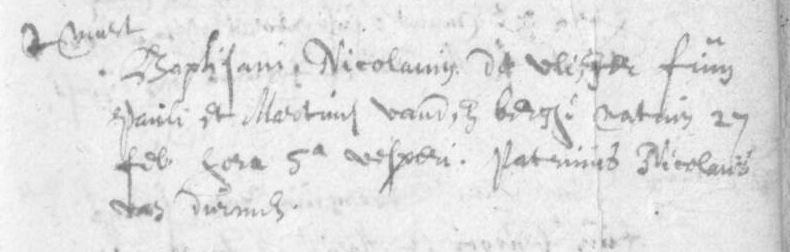 2 mart
Baptisavi Nicolaum de vlieger filium
Pauli et Martinæ vanden berghe natum 27
feb hora 5ª vesperi. Patrinus Nicolaus
van